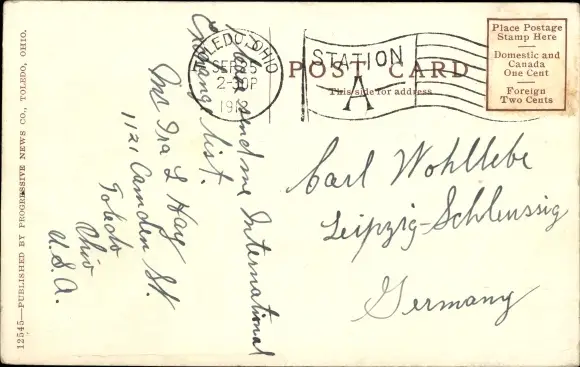 POST CARD
This side for address
Place Postage
Stamp Here
Domestic and
Canada
One Cent
Foreign
Two Cents
TOLEDO, OHIO
SEP
2-30P
STATION
A
Please send me International
Exchange list.
Mr Ira L Hay
1121 Camden St.
Toledo
Ohio
U.S.A.
Carl Wohllebe
Leipzig-Schleussig
Germany
12545—PUBLISHED BY PROGRESSIVE NEWS CO., TOLEDO, OHIO.